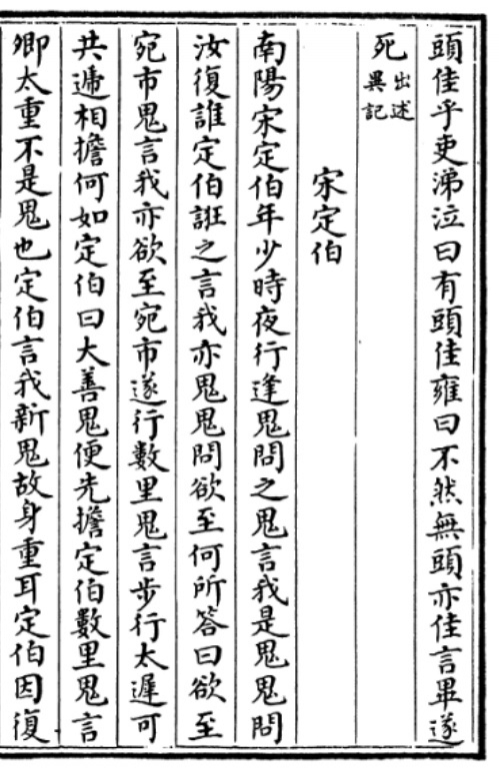 頭佳乎吏涕泣曰有頭佳雍曰不然無頭亦佳言畢遂
死出述異記
宋定伯
南陽宋定伯年少時夜行逢鬼問之鬼言我是鬼鬼問
汝復誰定伯誑之言我亦鬼鬼問欲至何所答曰欲至
宛市鬼言我亦欲至宛市遂行數里鬼言步行太遲可
共遞相擔何如定伯曰大善鬼便先擔定伯數里鬼言
卿太重不是鬼也定伯言我新鬼故身重耳定伯因復